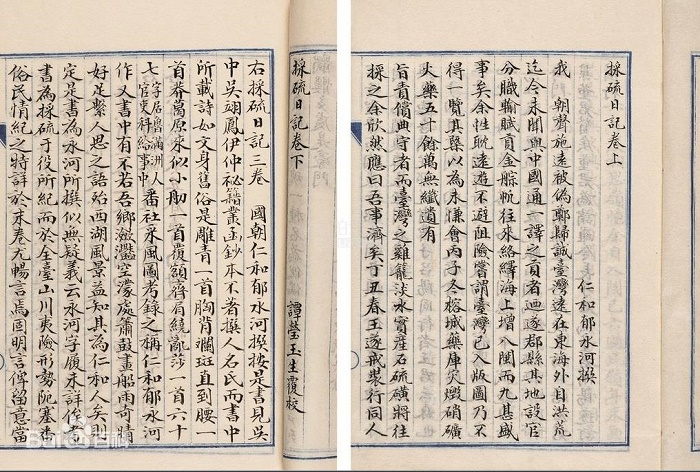 採硫日記卷上
仁和郁永河撰
我　朝聲施遠被偽鄭歸誠臺灣遠在東海外自洪荒
迄今未聞與中國通一譯之貢者迺遂郡縣其地設官
分職輸賦貢金賒帆往來絡繹海上增八閩而九甚盛
事矣余性耽遠遊不避阻險嘗謂臺灣已入版圖乃不
得一覽其槩以為未慊會丙子冬榕城藥庫災燬硝磺
火藥五十餘萬無纖遺有
旨責償典守者而臺灣之雞籠淡水實產石硫磺將往
採之余欣然應曰吾事濟矣丁丑春王遂戒裝行同人
採硫日記卷下
譚瑩玉生覆校
右採硫日記三卷　國朝仁和郁永河撰按是書見吳
中吳翊鳳伊仲秘籍叢函鈔本不著撰人名氏而書中
所載詩如文身舊俗是雕青一首胸背斕斑直到腰一
首番葛原來似小舠一首覆額齊肩繞亂莎一首六十
七字居魯滿洲官吏科給事中番社采風圖考錄之稱仁和郁永河
作又書中有不若吾鄉瀲灩空濛處簫鼓畫船雨奇晴
好足繫人思之語殆西湖風景益知其為仁和人矣則
定是書為永河所撰似無疑義云永河字履未詳俟考
書為採硫于役所紀而於全臺山川夷險形勢阨塞番
俗民情紀之特詳於末卷尤暢言焉固明言俾留意當
Baidu百科